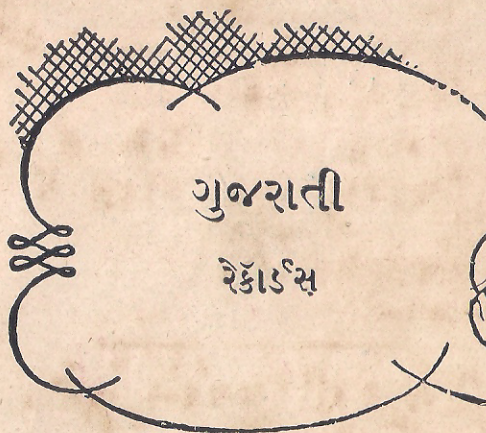 ગુજરાતી
રેકૉર્ડ્સ